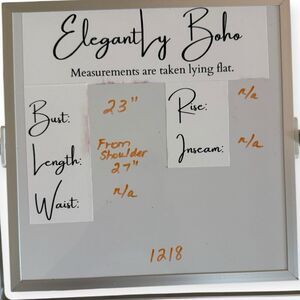 Elegantly Boho
Measurements are taken lying flat.
Bust: 23"
Rise: n/a
Length: From Shoulder 27"
Inseam: n/a
Waist: n/a
1218